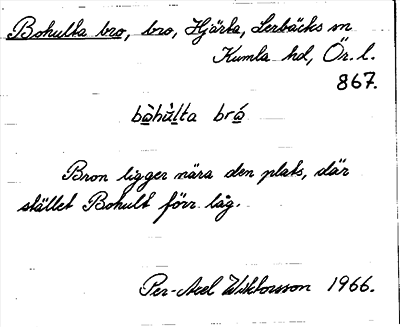 Bohulta bro, bro, Hjärta, Lerbäcks sn
Kumla hd, Ör. l.
867.
bòhùlta bró
Bron ligger nära den plats, där
stället Bohult förr låg.
Per-Axel Wiktorsson 1966.